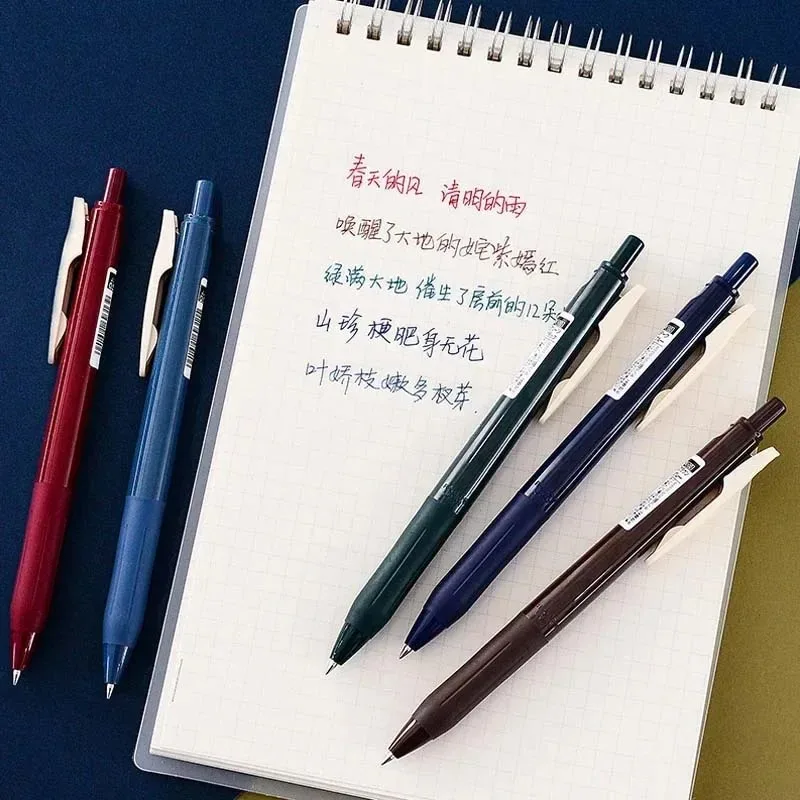 春天的风 清明的雨
唤醒了大地的姹紫嫣红
绿满大地 催生了房前的12朵
山珍梗肥身无花
叶娇枝嫩多杈芽.